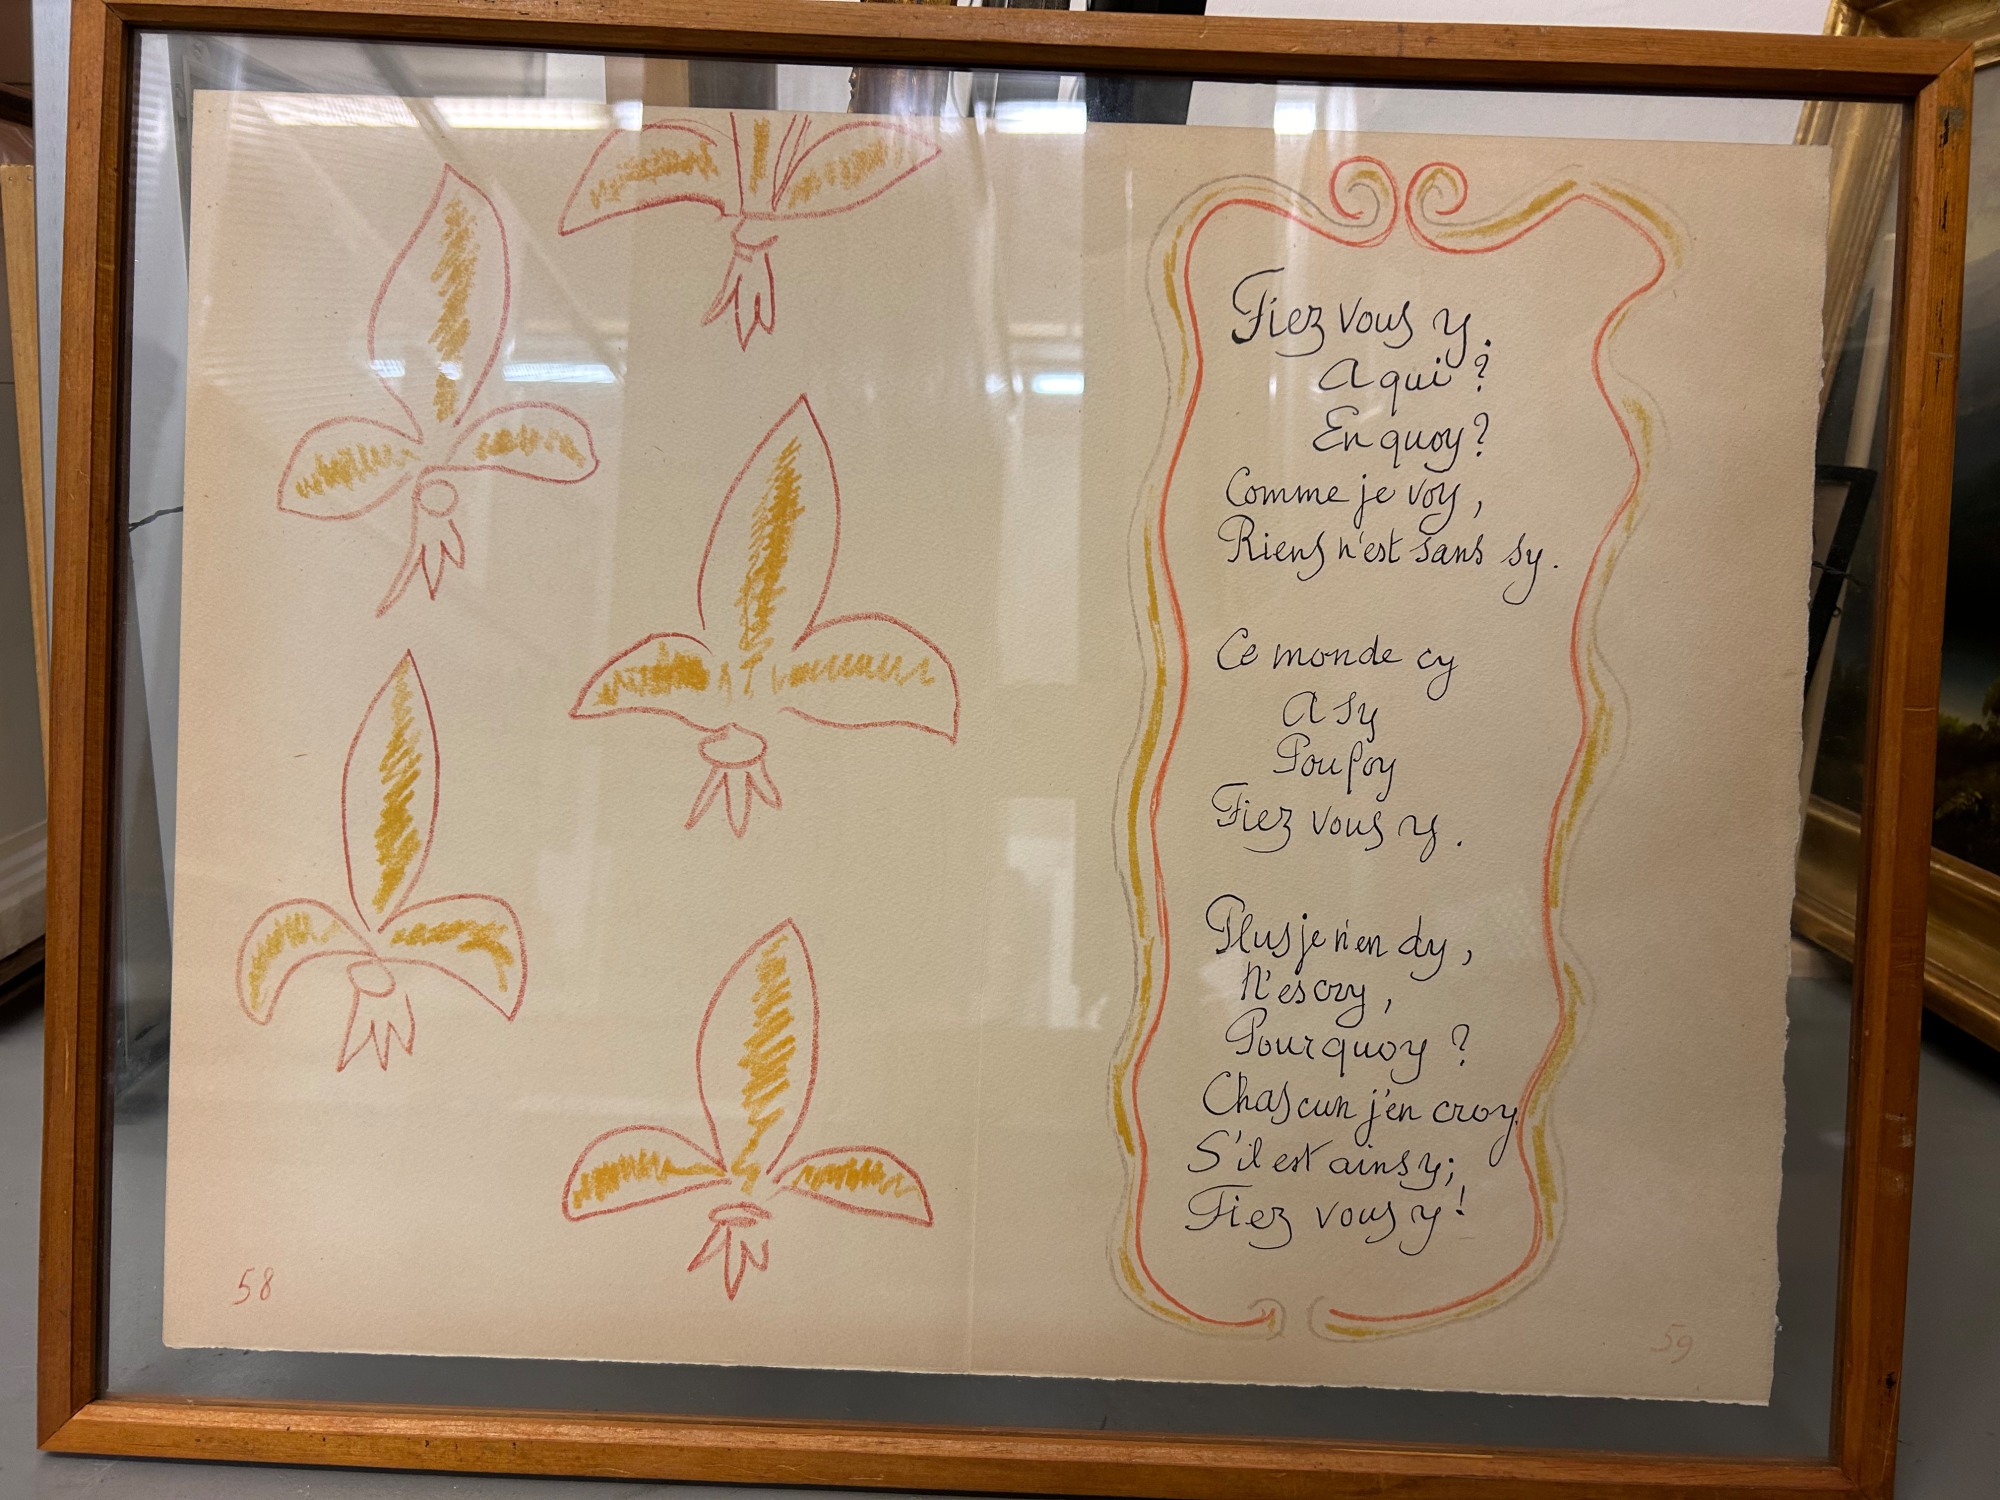 Fiez vous y.
A qui ?
En quoy ?
Comme je voy,
Riens n'est sans sy.
Ce monde cy
A sy
Pou foy
Fiez vous y.
Plus je n'en dy,
N'escry,
Pourquoy ?
Chascun j'en croy
S'il est ainsy;
Fiez vous y !
58
59